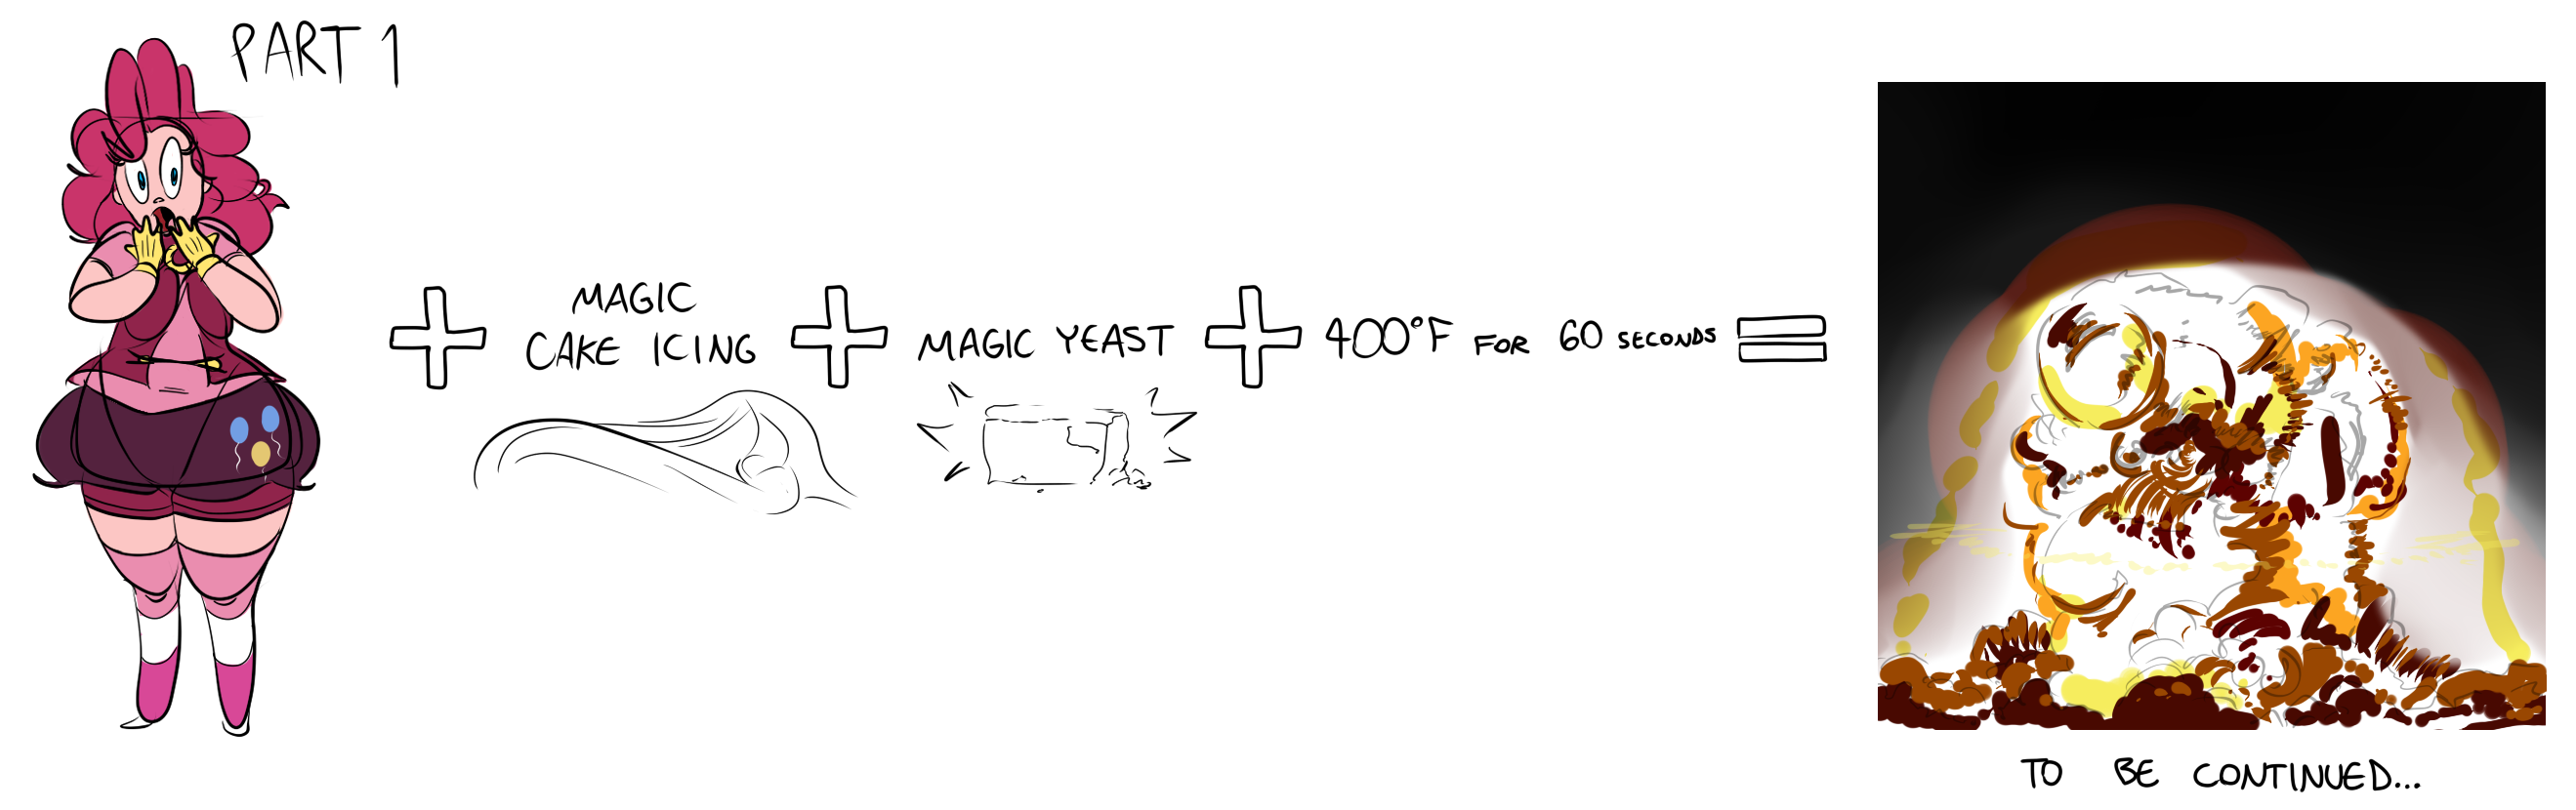 PART 1
MAGIC
CAKE ICING
MAGIC YEAST
400°F FOR 60 SECONDS
TO BE CONTINUED...